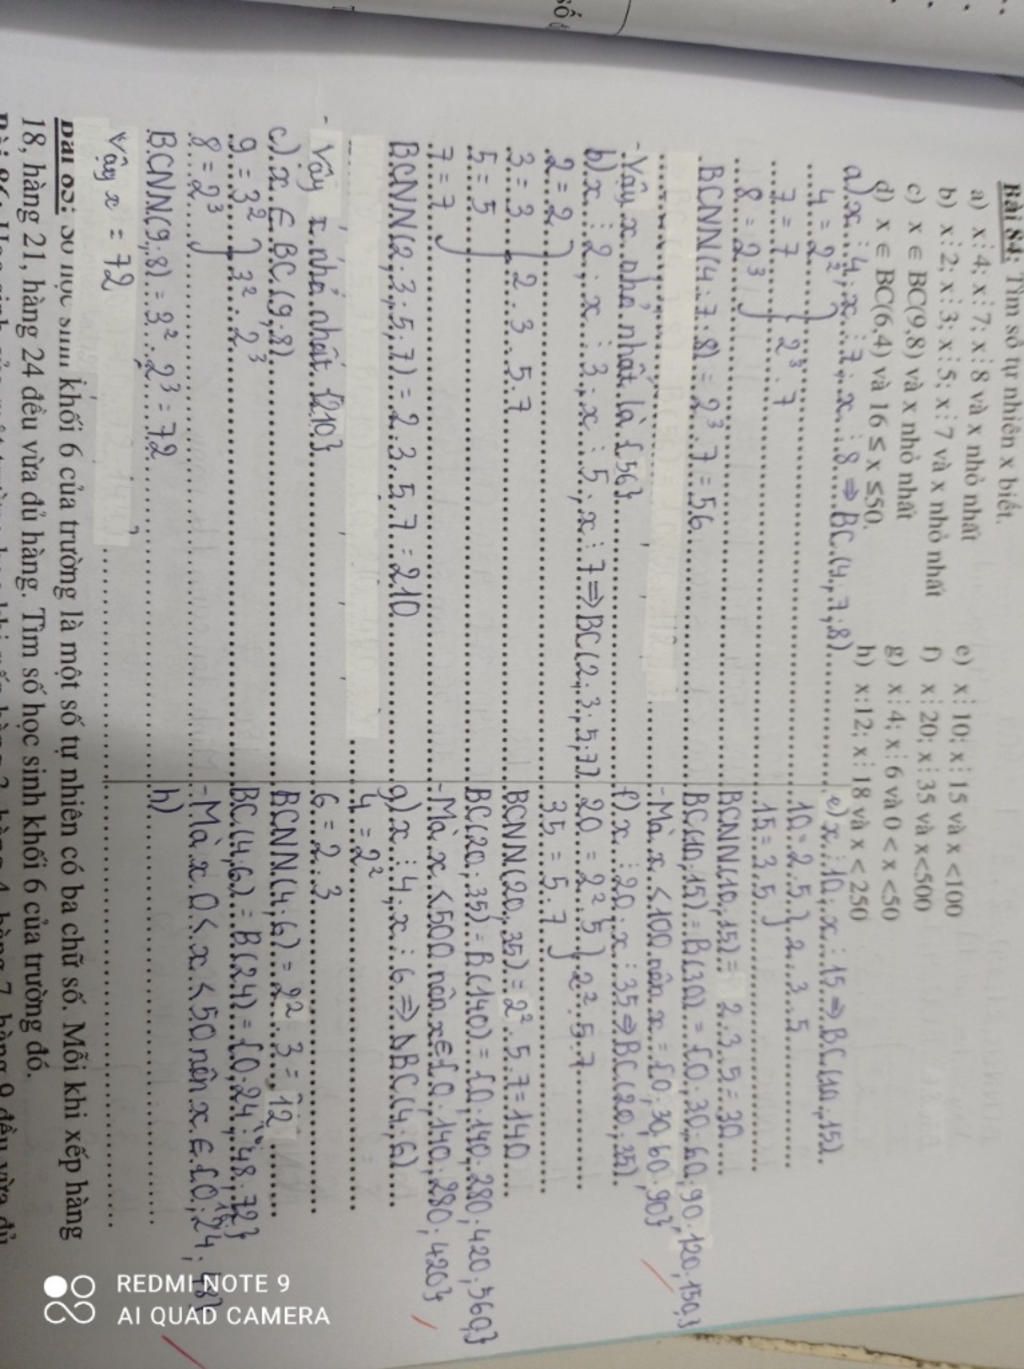 Bài 84: Tìm số tự nhiên x biết.
a) x⋮4; x⋮7; x⋮8 và x nhỏ nhất
b) x⋮2; x⋮3; x⋮5; x⋮7 và x nhỏ nhất
c) x ∈ BC(9,8) và x nhỏ nhất
d) x ∈ BC(6,4) và 16 ≤ x ≤50.
e) x⋮10; x⋮15 và x <100
f) x⋮20; x⋮35 và x<500
g) x⋮4; x⋮6 và 0 < x <50
h) x:12; x⋮18 và x < 250
a) x⋮4; x⋮7; x⋮8 ⇒ BC(4,7,8)
4 = 2²
7 = 7 } 2³.7
8 = 2³
BCNN(4.7.8) = 2³.7 = 56
- Vậy x nhỏ nhất là {56}
b) x⋮2; x⋮3; x⋮5; x⋮7 ⇒ BC(2,3,5,7)
2 = 2
3 = 3 } 2.3.5.7
5 = 5
7 = 7
BCNN(2.3.5,7) = 2.3.5.7 = 210
- Vậy x nhỏ nhất {210}
c) x ∈ BC(9,8)
9 = 3² } 3².2³
8 = 2³
BCNN(9,8) = 3².2³ = 72
Vậy x = 72
e) x⋮10; x⋮15 ⇒ BC(10,15)
10 = 2.5 } 2.3.5
15 = 3.5
BCNN(10,15) = 2.3.5 = 30
BC(10,15) = B(30) = {0.30.60.90.120,150,}
- Mà x < 100 nên x = {0,30,60.90}
f) x⋮20; x⋮35 ⇒ BC(20,35)
20 = 2².5 } 2².5.7
35 = 5.7
BCNN(20,35) = 2².5.7 = 140
BC(20,35) = B(140) = {0,140,280,420,560,}
- Mà x < 500 nên x ∈ {0,140,280,420}
g) x⋮4, x⋮6 ⇒ BC(4,6)
4 = 2²
6 = 2.3
BCNN(4,6) = 2².3 = 12
BC(4,6) = B(24) = {0.24.48.72}
- Mà x 0 < x < 50 nên x ∈ {0;24;48}
h)
khối 6 của trường là một số tự nhiên có ba chữ số. Mỗi khi xếp hàng
18, hàng 21, hàng 24 đều vừa đủ hàng. Tìm số học sinh khối 6 của trường đó.
REDMI NOTE 9
AI QUAD CAMERA